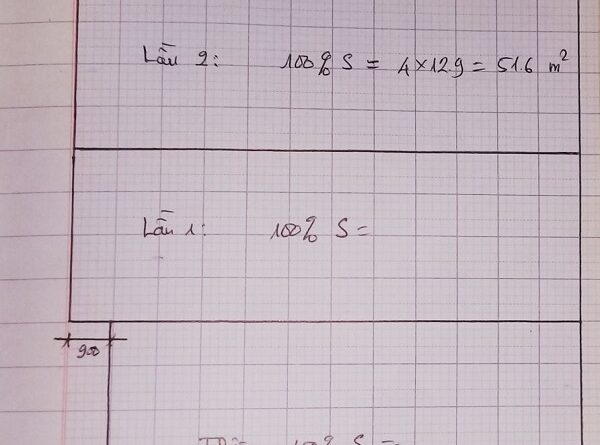 Lầu 2: 100% S = 4 × 12.9 = 51.6 m²
Lầu 1: 100% S =
900